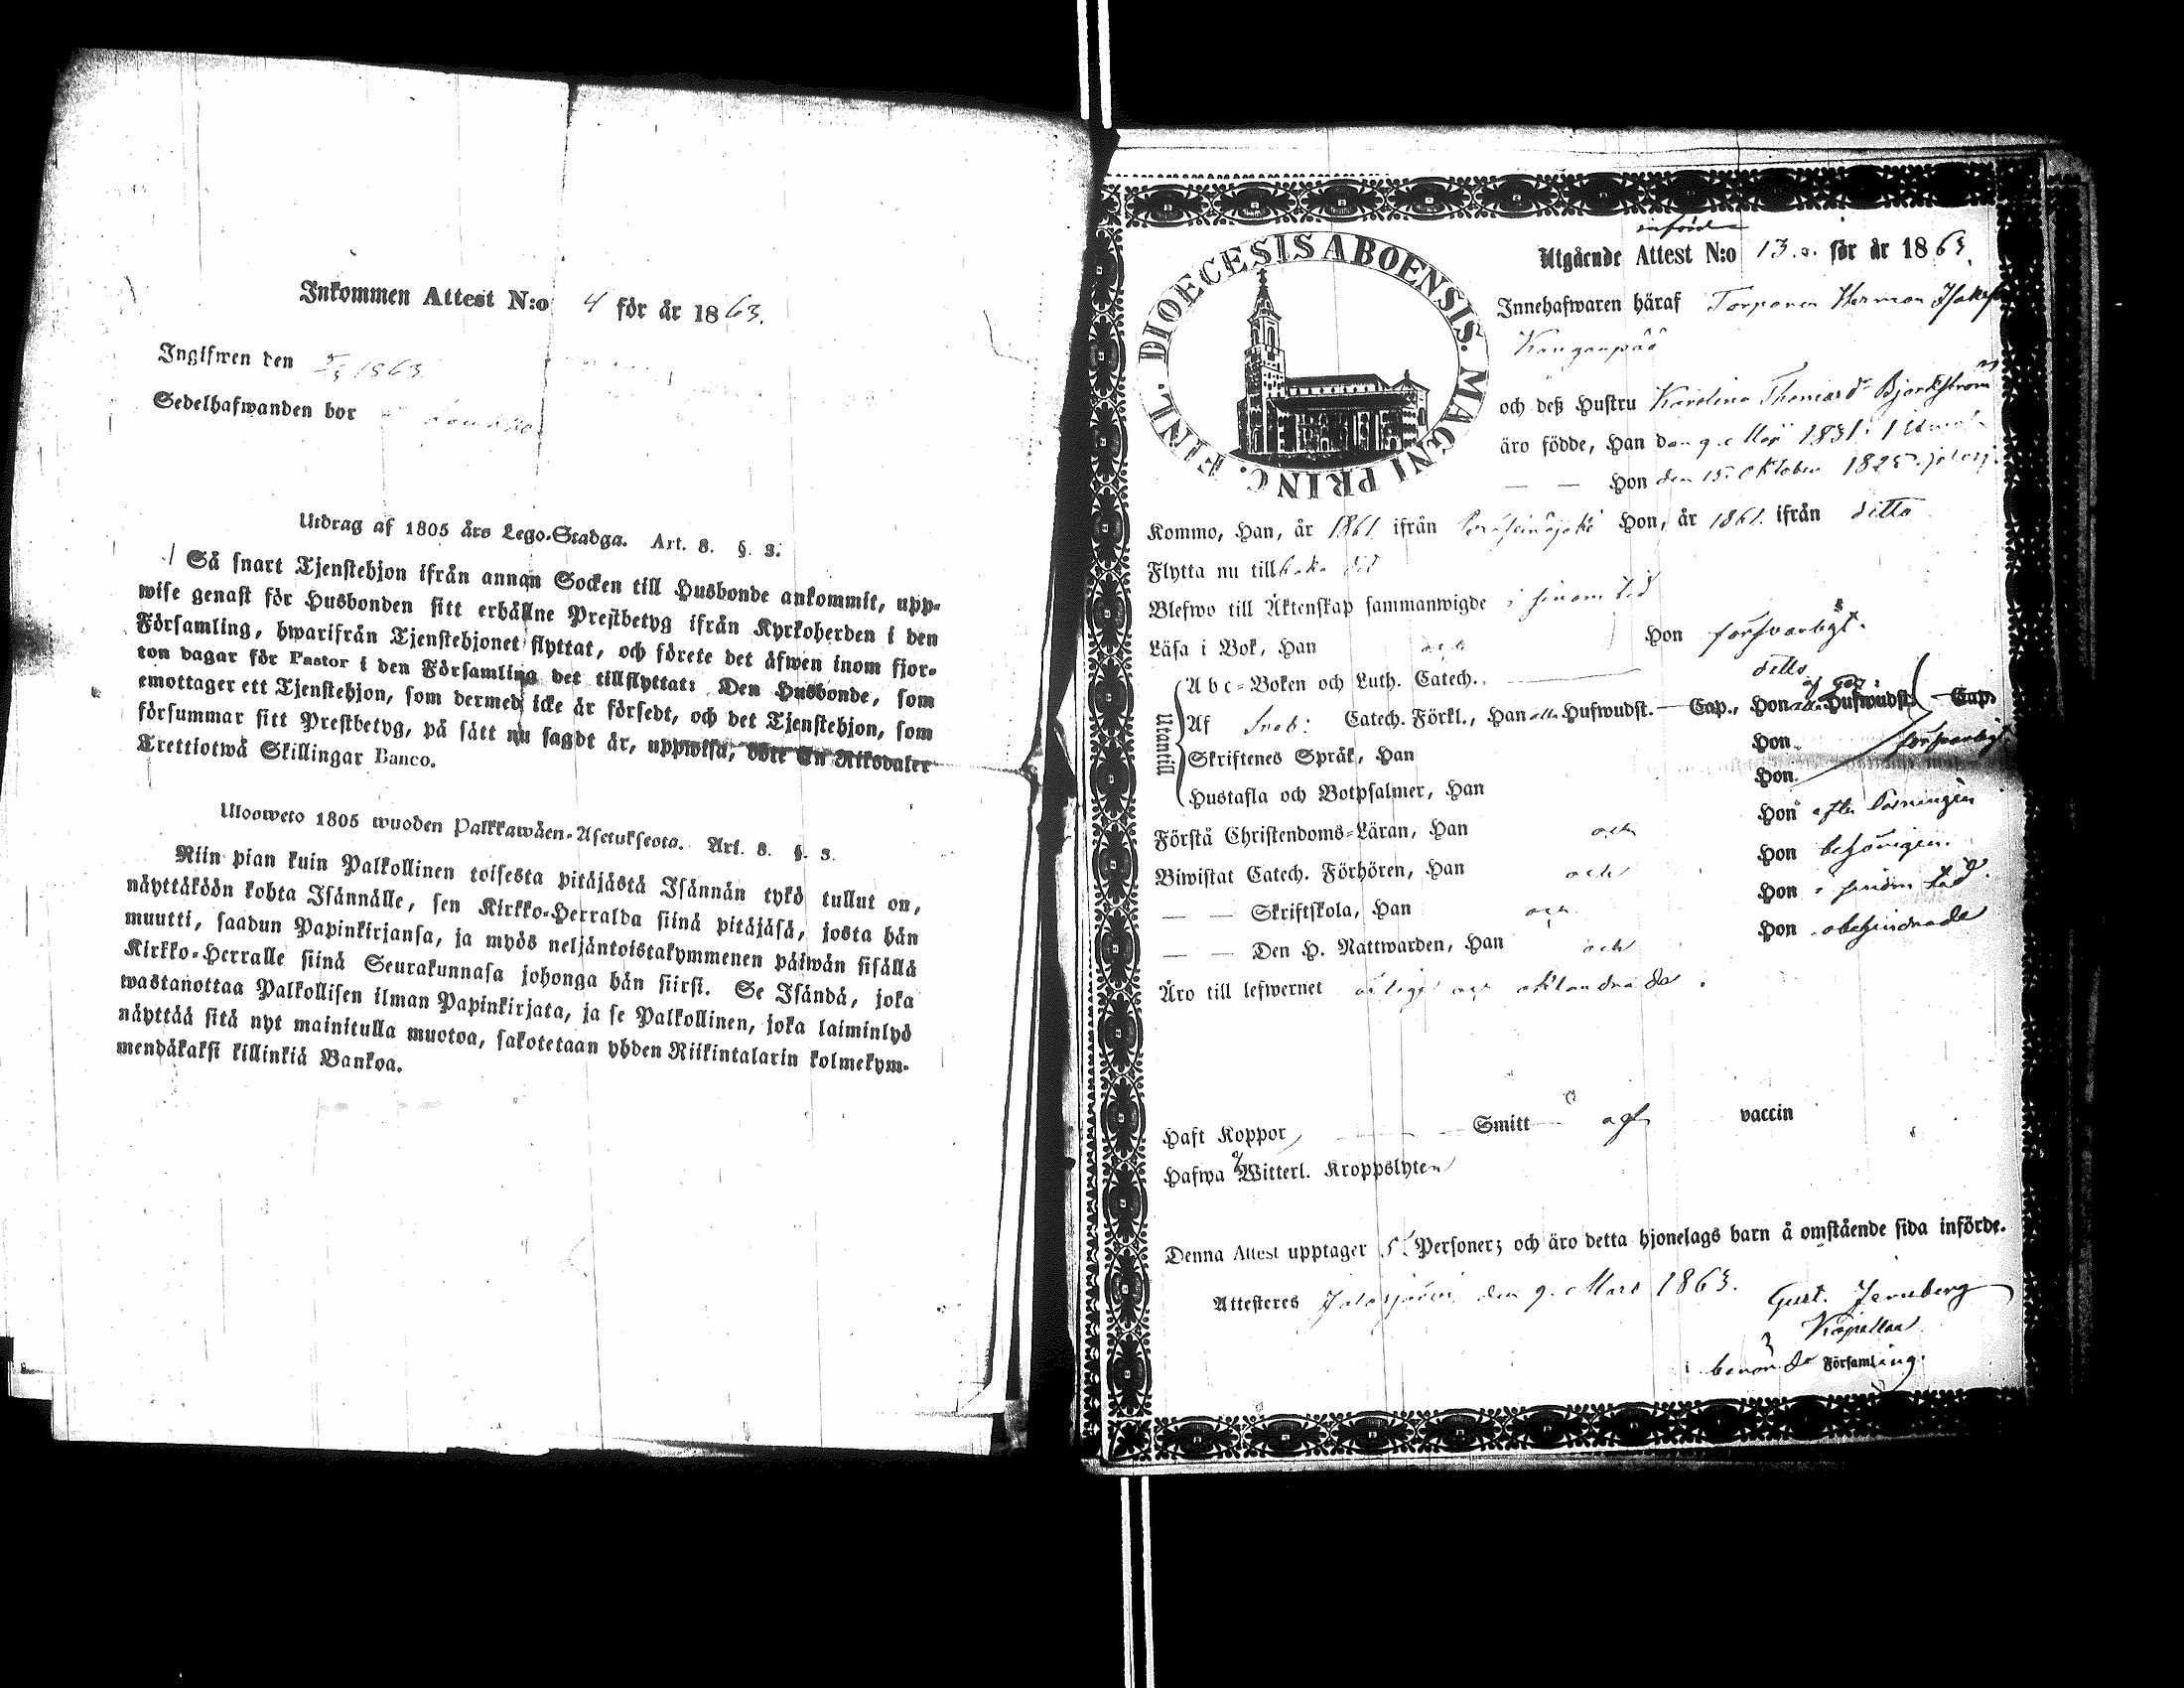 Inkommen Attest N:o 4 för år 1863.
Ingifwen den 1863
Sedelhafwanden bor
Utdrag af 1805 års Lego-Stadga. Art. 8. §. 3.
Så snart Tjenstehjon ifrån annan Socken till Husbonde ankommit, upp-
wise genast för Husbonden sitt erhållne Prestbetyg ifrån Kyrkoherden i den
Församling, hwarifrån Tjenstehjonet flyttat, och förete det äfwen inom fjor-
ton dagar för Pastor i den Församling det tillflyttat: Den Husbonde, som
emottager ett Tjenstehjon, som dermed icke är försedt, och det Tjenstehjon, som
försummar sitt Prestbetyg, på sätt nu sagdt är, uppwisa, böte En Riksdaler
Trettiotwå Skillingar Banco.
Ulosweto 1805 wuoden Palkkawäen-Asetuksesta. Art. 8. §. 3.
Niin pian kuin Palkollinen toisesta pitäjästä Isännän tykö tullut on,
näyttäköön kohta Isännälle, sen Kirkko-Herralda siinä pitäjäsä, josta hän
muutti, saadun Papinkirjansa, ja myös neljäntoistakymmenen päiwän sisällä
Kirkko-Herralle siinä Seurakunnasa johonga hän siirsi. Se Isändä, joka
wastanottaa Palkollisen ilman Papinkirjata, ja se Palkollinen, joka laiminlyö
näyttää sitä nyt mainitulla muotoa, sakotetaan yhden Riikintalarin kolmekym-
mendäkaksi killinkiä Bankoa.
DIOECESIS ABOENSIS. MAGNI PRINC. FINL.
Utgående Attest N:o 13. för år 1863.
Innehafwaren häraf Torparen Herman
Kanganpää
och deß Hustru Karolina Thomasd:r Bjorkström
äro födde, Han den 9. Maj 1831 i
— — Hon den 15. Oktober 1825.
Kommo, Han, år 1861 ifrån Peräseinäjoki Hon, år 1861. ifrån ditto
Flytta nu tillbaka dit
Blefwo till Äktenskap sammanwigde i sinom tid
Läsa i Bok, Han och Hon försvarligt.
Utantill
Abc-Boken och Luth. Catech. ditto
Af Sveb: Catech. Förkl., Han alla Hufwudst. — Cap., Hon Hufwudst. — Cap.
Skriftenes Språk, Han Hon försvarligt
Hustafla och Botpsalmer, Han Hon
Förstå Christendoms-Läran, Han och Hon efter
Biwistat Catech. Förhören, Han och Hon behörigen.
— — Skriftskola, Han och Hon i sinom tid.
— — Den H. Nattwarden, Han och Hon obehindrade
Äro till lefwernet och oklandrade.
Haft Koppor Smitt vaccin
Hafwa Witterl. Kroppslyten
Denna Attest upptager 5 Personer; och äro detta hjonelags barn å omstående sida införde.
Attesteres Jalasjärvi den 9. Mars 1863.
Gust. Jernberg
Kapellan
i Församling.